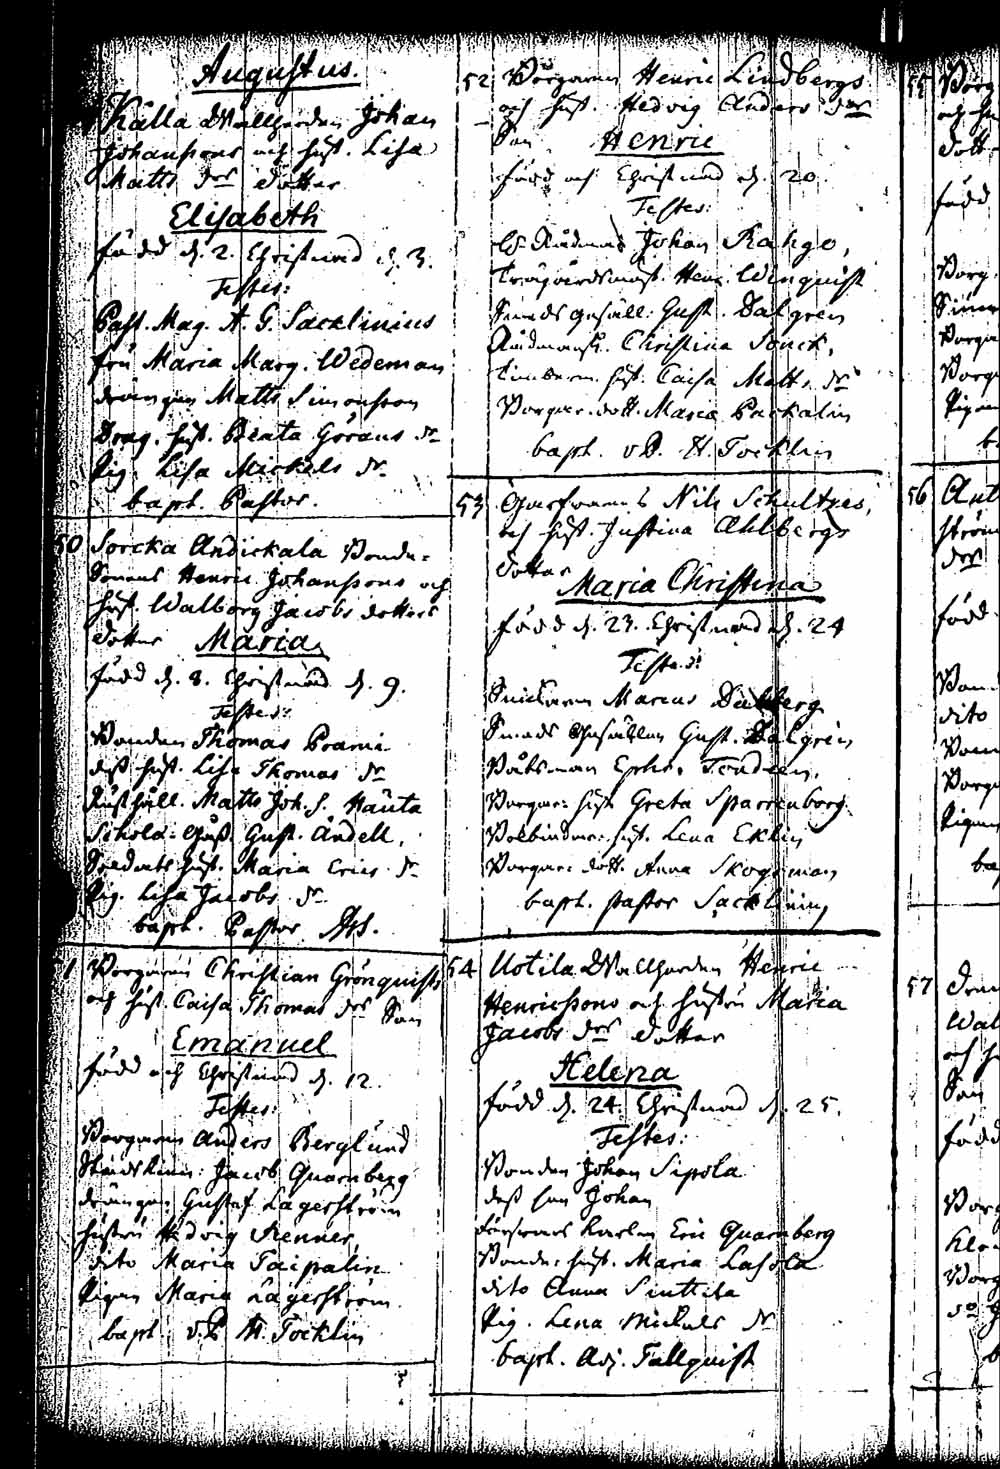 Augustus.
Källa Wallharden Johan
Johanssons och hust. Lisa
Matts dr dotter
Elisabeth
född d. 2. Christnad d. 3.
Testes:
Past. Mag. A. G. Sacklinius
fru Maria Marg. Wedeman
drängen Matts Simonsson
Drag. hust. Beata Görans dr
Pig. Lisa Mickels dr
bapt. Pastor.
50 Sorcka Andickala Bonde-
Sonens Henric Johanssons och
hust. Walborg Jacobs dotters
dotter Maria
född d. 8. Christnad d. 9.
Testes:
Bonden Thomas Prami
dess hust. Lisa Thomas dr
Rusthåll. Matts Joh. S. Hauta
Gust. Andell.
Soldats hust. Maria Erics dr
Pig. Lisa Jacobs dr
bapt. Pastor
51 Borgaren Christian Grönquists
och hust. Caisa Thomas dr Son
Emanuel
född och Christnad d. 12.
Testes:
Borgaren Anders Berglund
Jacob Quarnberg
drängen Gustaf Lagerström
hustru Hedvig Renner
dito Maria Taipalin
Pigan Maria Lagerström
bapt. v.P. H. Tocklin
52 Borgaren Henric Lindbergs
och hust. Hedvig Anders dr
Son Henric
född och Christnad d. 20.
Testes:
Rådman Johan
Trägårdsmäst. Henr. Winquist
Smeds gesäll. Gust. Dalgren
Rådmansh. Christina Sonck,
Timberm. hust. Caisa Matts dr
Borgar. dott. Maria Packalin
bapt. v.P. H. Tocklin
53 Garfvarens Nils Schultzes,
och hust. Justina Ahlbergs
dotter
Maria Christina
född d. 23. Christnad d. 24
Testes:
Snickaren Marcus
Smeds Gesällen Gust. Dalgren
Båtsman Ephr.
Borgar: hust. Greta Sparrenborg
Bokbindar: hust. Lena Eklin
Borgar: dott. Anna Skogsman
bapt. pastor Sacklinius
54 Uotila Wallharden Henric
Henricssons och hustru Maria
Jacobs dr dotter
Helena
född d. 24. Christnad d. 25.
Testes:
Bonden Johan Sipola
dess son Johan
Eric Quarnberg
Bonde: hust. Maria Lassila
dito Anna Sinttila
Pig. Lena Mickels dr
bapt. Adj. Tallquist
55 Borg
och hu
dott
född
Borg.
Borga
Borga
Pigan
56 Ant
ström
dr
född
dito
Borga
Pigan
bap
57
Wal
och h
Son
född
Borg
Borg